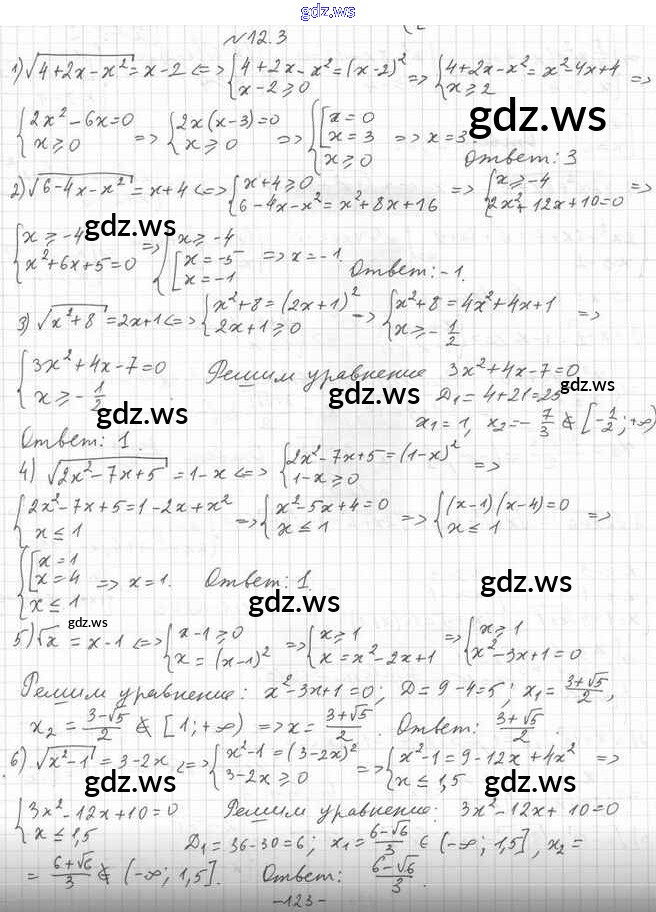 gdz.ws
N12.3
1) √(4+2x-x²) = x-2 <=> {4+2x-x² = (x-2)²; x-2≥0 => {4+2x-x² = x²-4x+4; x≥2 =>
gdz.ws
{2x²-6x=0; x≥0 => {2x(x-3)=0; x≥0 => {[x=0; x=3; x≥0 => x=3.
Ответ: 3
2) √(6-4x-x²) = x+4 <=> {x+4≥0; 6-4x-x² = x²+8x+16 => {x≥-4; 2x²+12x+10=0 =>
gdz.ws
{x≥-4; x²+6x+5=0 => {x≥-4; [x=-5; x=-1 => x=-1.
Ответ: -1.
3) √(x²+8) = 2x+1 <=> {x²+8 = (2x+1)²; 2x+1≥0 => {x²+8 = 4x²+4x+1; x≥-1/2 =>
{3x²+4x-7=0; x≥-1/2. Решим уравнение 3x²+4x-7=0
gdz.ws
D₁ = 4+21=25
gdz.ws gdz.ws
x₁=1, x₂=-7/3 ∉ [-1/2; +∞)
Ответ: 1.
4) √(2x²-7x+5) = 1-x <=> {2x²-7x+5 = (1-x)²; 1-x≥0 =>
{2x²-7x+5=1-2x+x²; x≤1 => {x²-5x+4=0; x≤1 => {(x-1)(x-4)=0; x≤1 =>
{[x=1; x=4; x≤1 => x=1. Ответ: 1.
gdz.ws
gdz.ws
gdz.ws
5) √x = x-1 <=> {x-1≥0; x=(x-1)² => {x≥1; x=x²-2x+1 => {x≥1; x²-3x+1=0
Решим уравнение: x²-3x+1=0; D=9-4=5; x₁=(3+√5)/2,
x₂=(3-√5)/2 ∉ [1; +∞) => x=(3+√5)/2. Ответ: (3+√5)/2.
6) √(x²-1) = 3-2x <=> {x²-1 = (3-2x)²; 3-2x≥0 => {x²-1=9-12x+4x²; x≤1,5 =>
gdz.ws gdz.ws
{3x²-12x+10=0; x≤1,5 Решим уравнение: 3x²-12x+10=0
D₁=36-30=6; x₁=(6-√6)/3 ∈ (-∞; 1,5], x₂=
=(6+√6)/3 ∉ (-∞; 1,5]. Ответ: (6-√6)/3.
gdz.ws gdz.ws
-123-